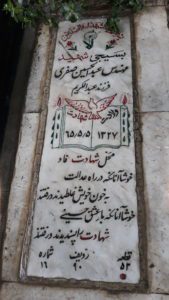 بسیجی شهید
مهندس عبدالحسین صفری
فرزند عبدالکریم
۱۳۲۷ ۶۵/۵/۵
محل شهادت فاو
خوشا آنانکه در راه عدالت
به خون خویش غلطیدند و رفتند
خوشا آنانکه با عشق حسینی
شهادت را پسندیدند و رفتند
قطعه ردیف شماره
۵۳ ۹۰ ۱۶